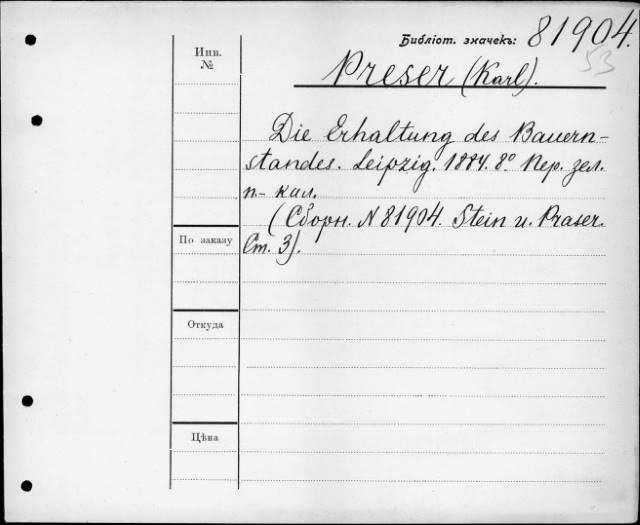 Библіот. значекъ: 81904.
53
Инв.
№
Preser (Karl).
Die Erhaltung des Bauern-
standes. Leipzig. 1884. 8° Пер. зел.
п-кал.
(Сборн. N 81904. Stein u. Praser.
По заказу
Ст. 3).
Откуда
Цѣна